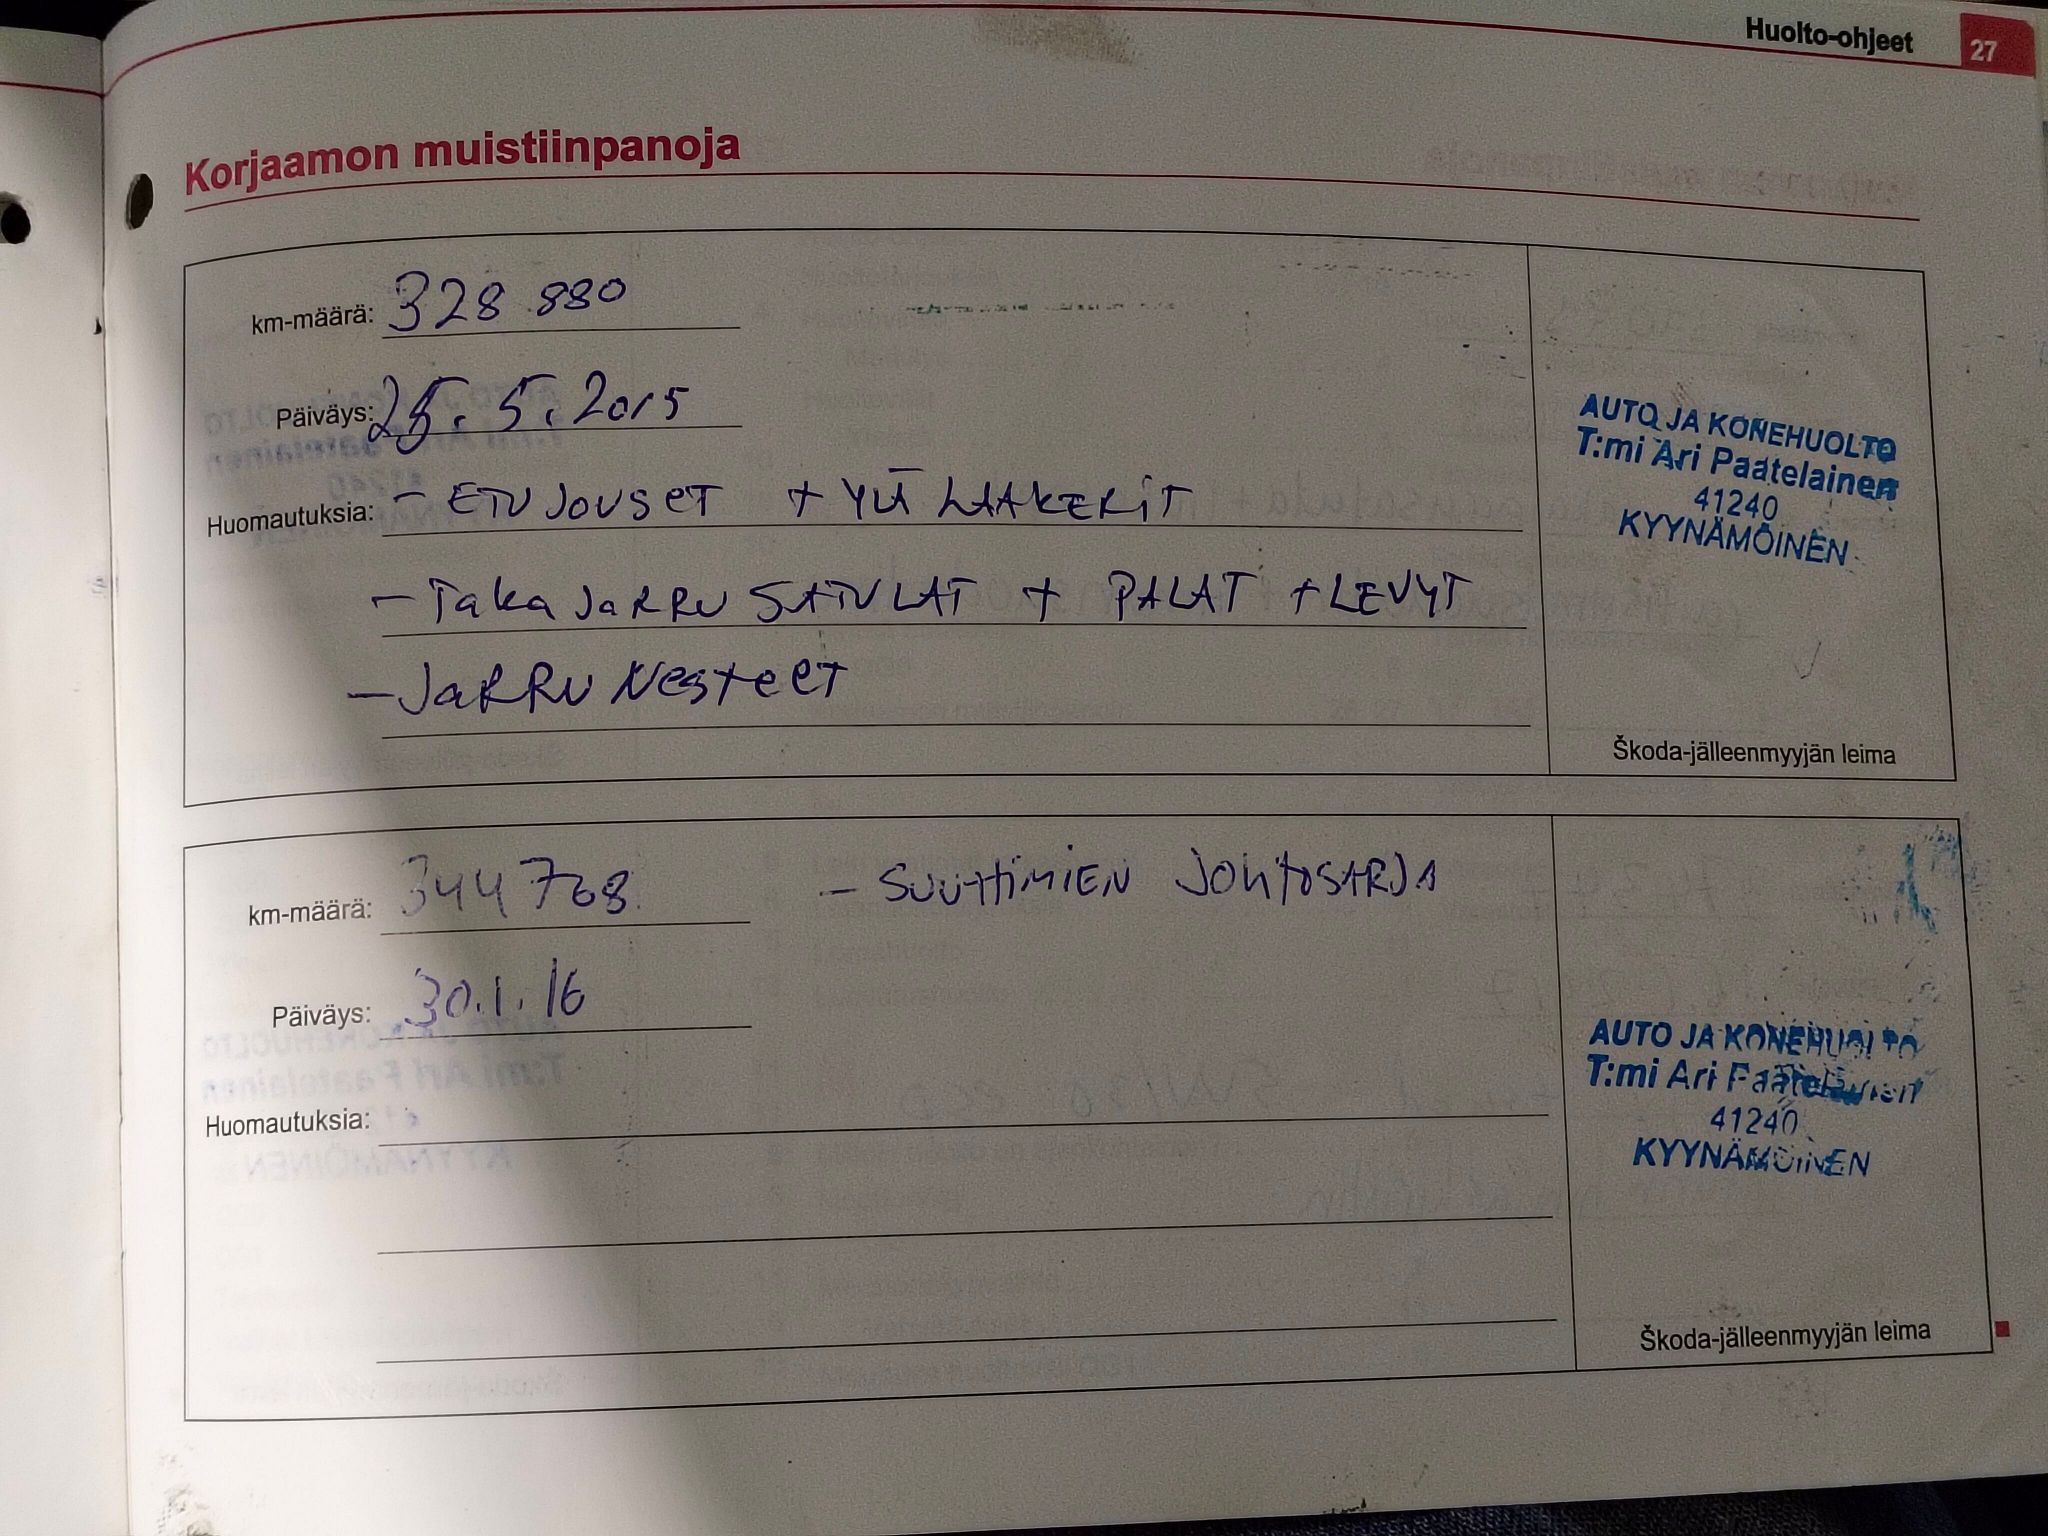 Huolto-ohjeet 27
Korjaamon muistiinpanoja
km-määrä: 328 880
Päiväys: 25.5.2015
Huomautuksia: - ETU JOUSET + YLÄ LAAKERIT
- Taka JARRU SATULAT + PALAT + LEVYT
- JARRU NESTEET
AUTO JA KONEHUOLTO
T:mi Ari Paatelainen
41240
KYYNÄMÖINEN
Škoda-jälleenmyyjän leima
km-määrä: 344 768 - SUUTTIMIEN JOHTOSARJA
Päiväys: 30.1.16
Huomautuksia:
AUTO JA KONEHUOLTO
T:mi Ari Paatelainen
41240
KYYNÄMÖINEN
Škoda-jälleenmyyjän leima